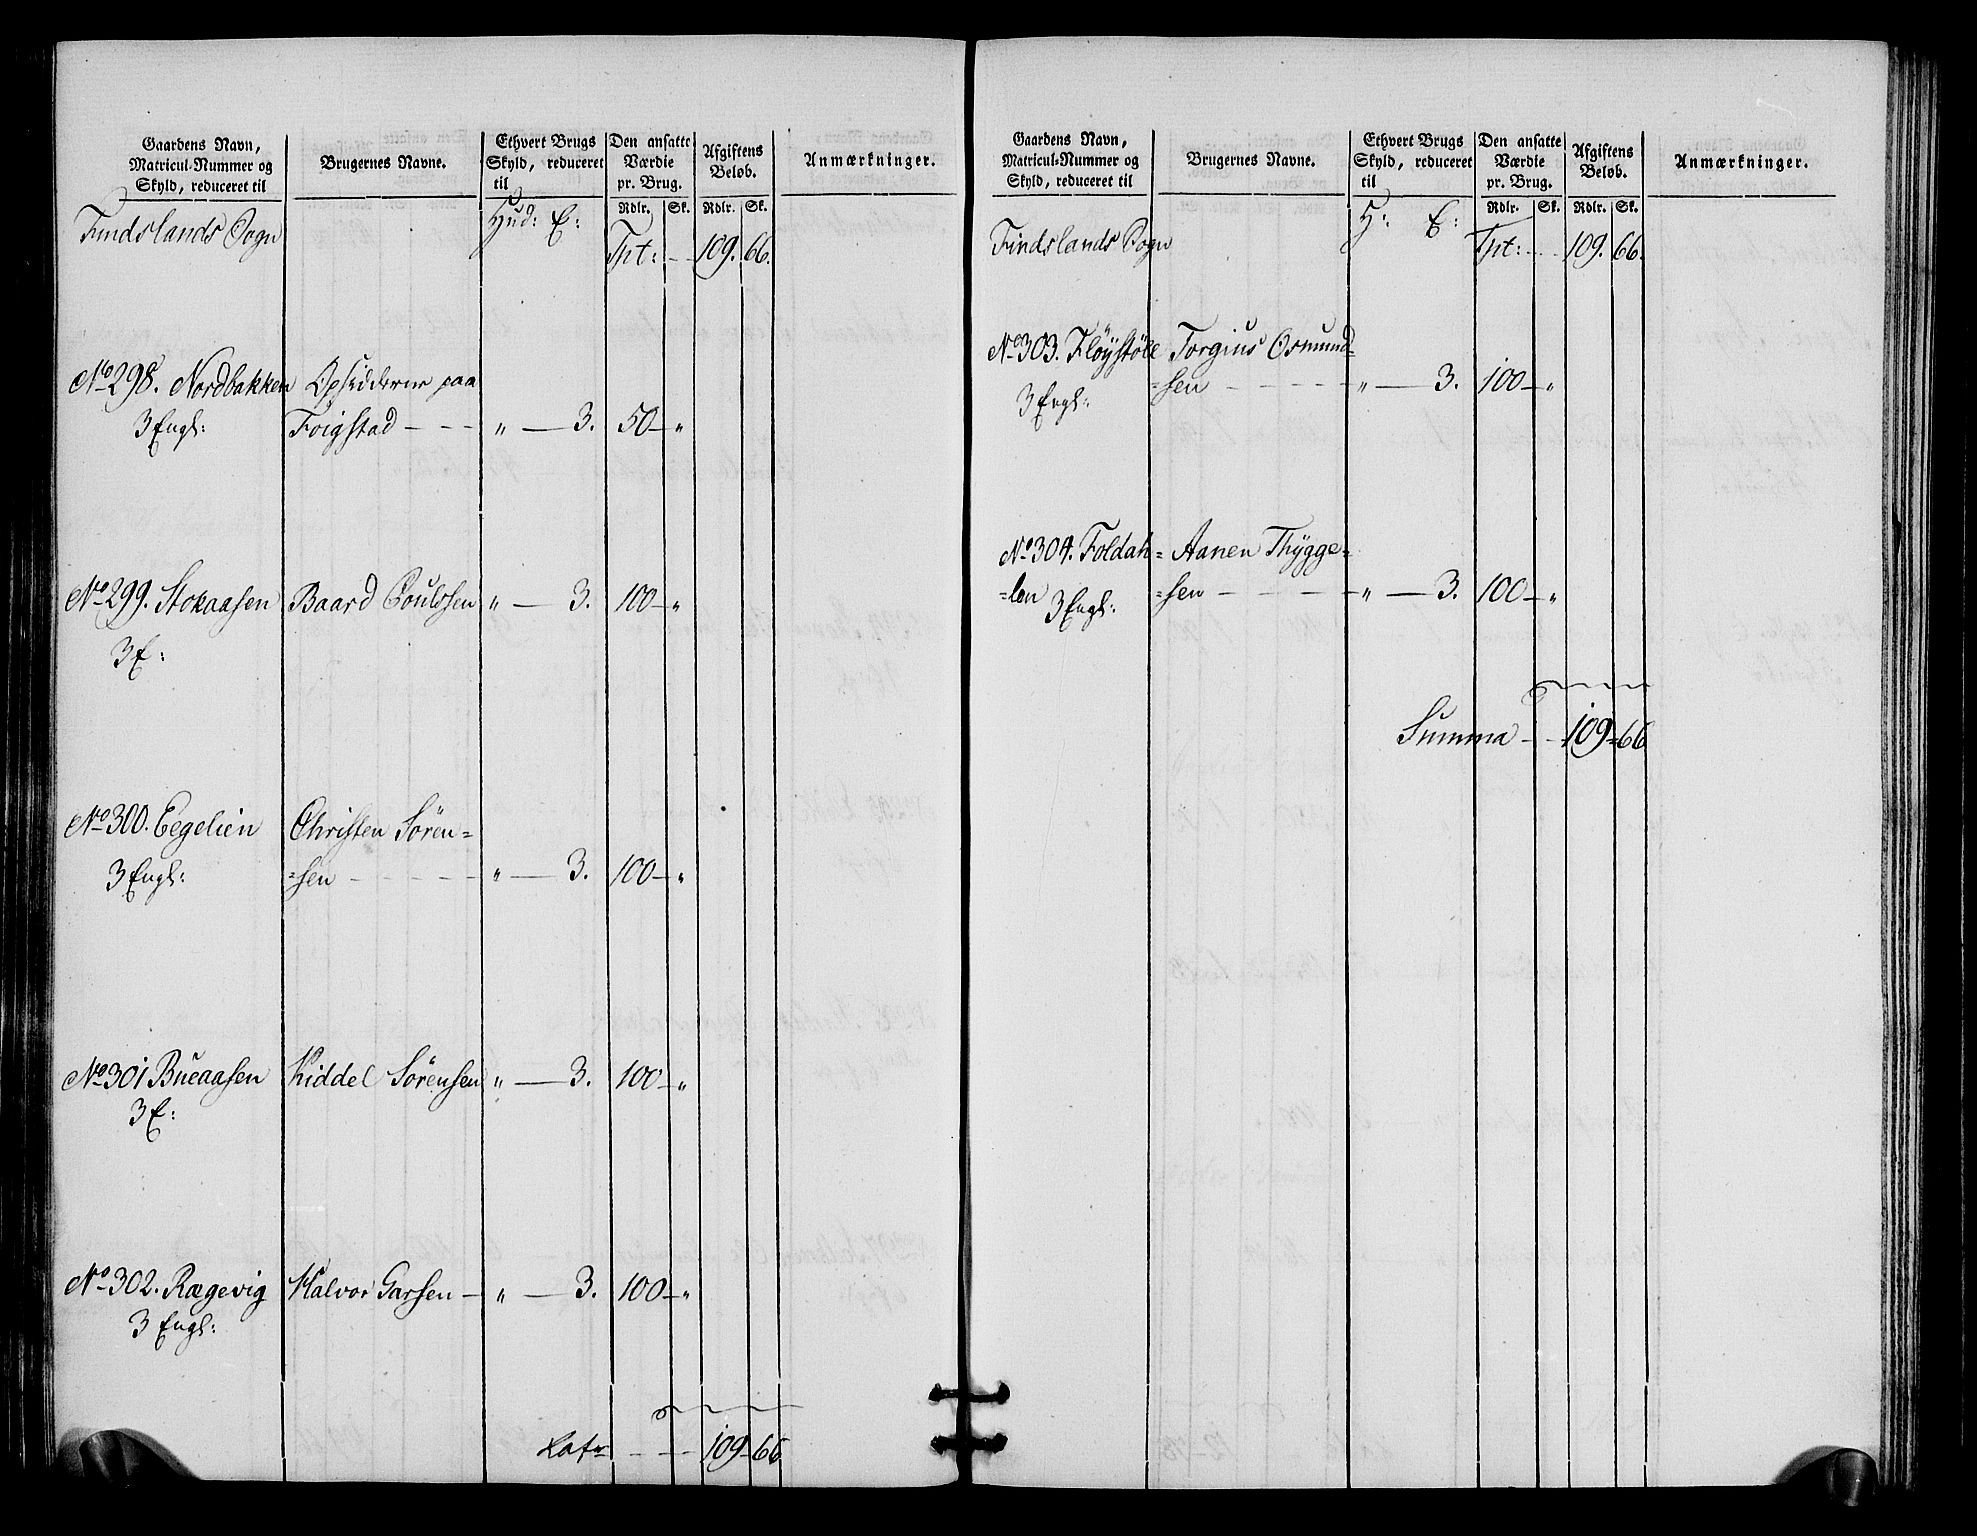 Gaardens Navn,
Matricul-Nummer og
Skyld, reduceret til
Brugernes Navne.
Ethvert Brugs
Skyld, reduceret
til
Den ansatte
Værdie
pr. Brug.
Afgiftens
Beløb.
Anmærkninger.
Rdlr. Sk. Rdlr. Sk.
Findslands Sogn Hud: E:
Tpt: - - 109. 66.
No 298. Nordbakken Opsidderne paa
3 Engl: Foigstad - - - " — 3. 50 — "
No 299. Stokaasen Baard Poulssen " — 3. 100 — "
3 E:
No 300. Eegelien Christen Sören=
3 Engl: =sen - - - - " — 3. 100 — "
No 301 Bueaasen Kiddel Sörensen " — 3. 100 — "
3 E:
No 302. Rægevig Halvor Garsen — " — 3. 100 — "
3 Engl:
Lats - - - 109 - 66
Gaardens Navn,
Matricul-Nummer og
Skyld, reduceret til
Brugernes Navne.
Ethvert Brugs
Skyld, reduceret
til
Den ansatte
Værdie
pr. Brug.
Afgiftens
Beløb.
Anmærkninger.
Rdlr. Sk. Rdlr. Sk.
Findslands Sogn H: E:
Tpt: - - 109. 66.
No 303. Fløystöle Torgius Osmund=
3 Engl: =sen - - - - - " — 3. 100 — "
No 304. Foldah= Aanen Thÿgge=
=len 3 Engl: =sen - - - - " — 3. 100 — "
Summa - - 109 - 66